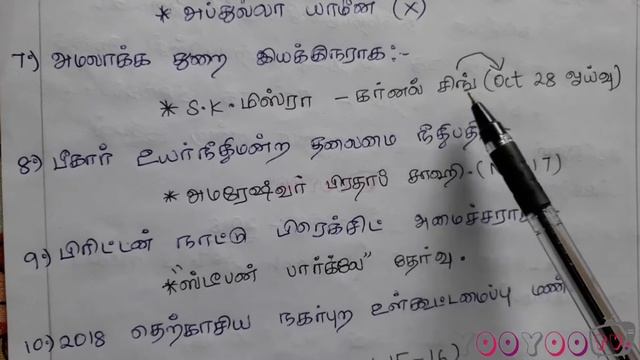 * அப்துல்லா யாமீன் (X)
7) அமலாக்க துறை இயக்குநராக:-
* S.K. மிஸ்ரா - கர்னல் சிங் (Oct 28 ஓய்வு)
8) பீகார் உயர்நீதிமன்ற தலைமை நீதிபதி
* அமரேஷ்வர் பிரதாப் சாஹி. (N 17)
9) பிரிட்டன் நாட்டு பிரெக்சிட் அமைச்சராக
* "ஸ்டீபன் பார்க்லே" தேர்வு.
10) 2018 தெற்காசிய நகர்புற உள்கூட்டமைப்பு
15-16)
YOOYOOTV